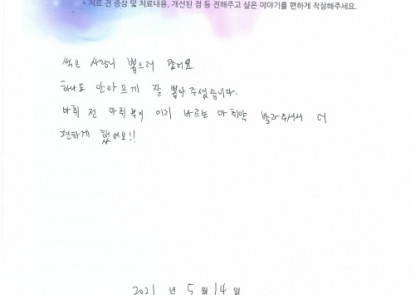 * 치료 전 증상 및 치료내용, 개선된 점 등 전해주고 싶은 이야기를 편하게 작성해주세요.
썩은 사랑니 뽑으러 왔어요
하나도 안아프게 잘 뽑아 주셨습니다.
마취 전 마취 부위 이기 바르는 마취약 발라주셔서 더
편하게 했어요!!
2021 년 5 월 14 일